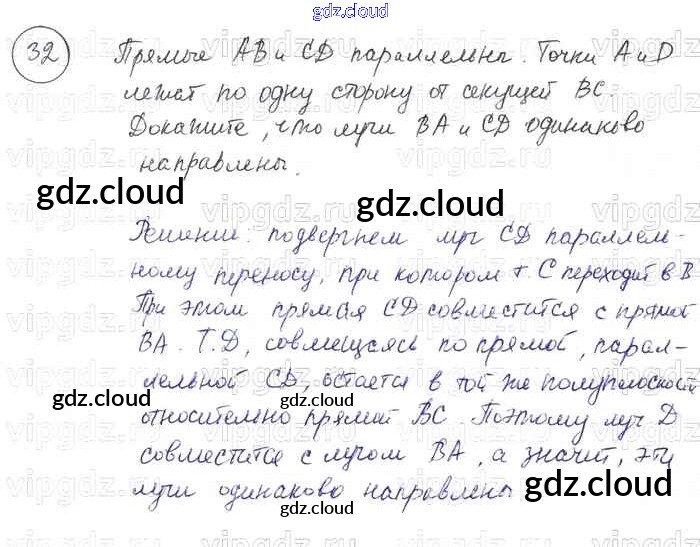 gdz.cloud
32 Прямые АВ и CD параллельны. Точки А и D
лежат по одну сторону от секущей ВС.
Докажите, что лучи ВА и CD одинаково
направлены.
gdz.cloud gdz.cloud
Решение: подвергнем луч CD параллель-
ному переносу, при котором т. С переходит в В
При этом прямая CD совместится с прямой
ВА. Т. D, совмещаясь по прямой, парал-
лельной CD, остается в той же полуплоскости
gdz.cloud gdz.cloud
относительно прямой ВС. Поэтому луч D
совместится с лучом ВА, а значит, эти
лучи одинаково направлены
gdz.cloud gdz.cloud